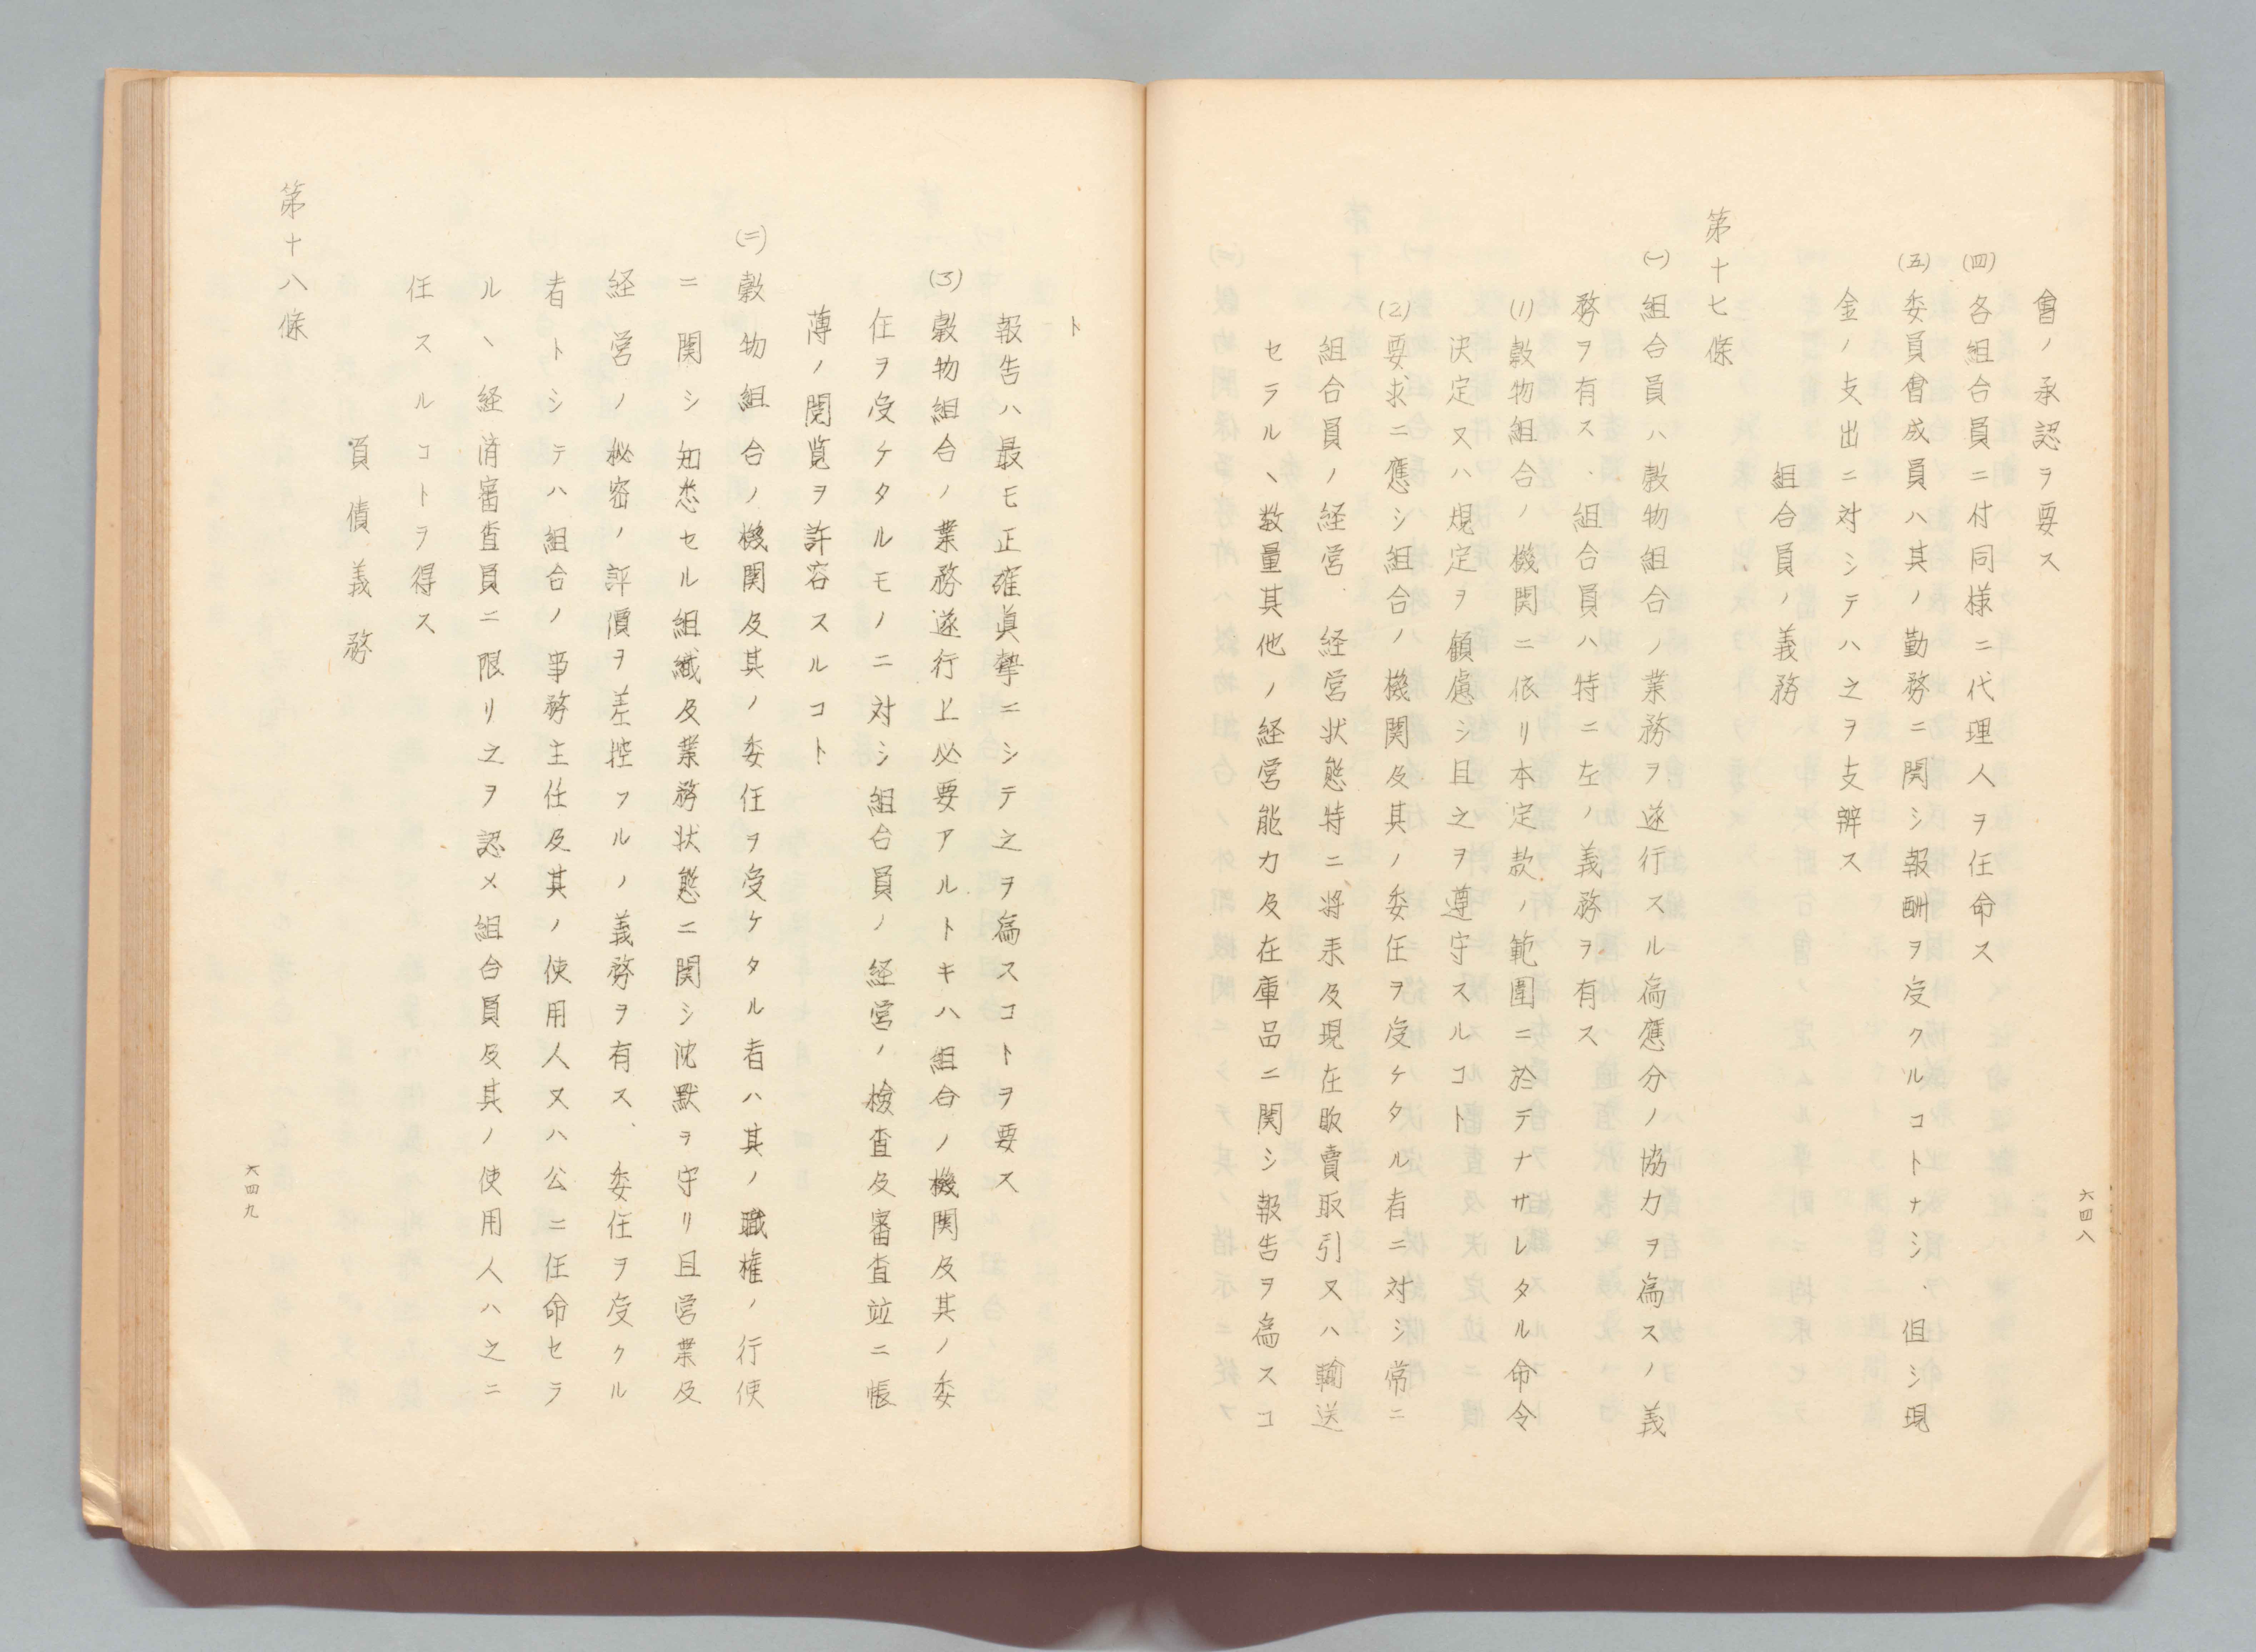 會ノ承認ヲ要ス
㈣各組合員ニ付同様ニ代理人ヲ任命ス
㈤委員會成員ハ其ノ勤務ニ関シ報酬ヲ受クルコトナシ、但シ現
金ノ支出ニ対シテハ之ヲ支辨ス
組合員ノ義務
第十七條
㈠組合員ハ穀物組合ノ業務ヲ遂行スル為應分ノ協力ヲ為スノ義
務ヲ有ス、組合員ハ特ニ左ノ義務ヲ有ス
(1)穀物組合ノ機関ニ依リ本定款ノ範囲ニ於テナサレタル命令
決定又ハ規定ヲ顧慮シ且之ヲ遵守スルコト
(2)要求ニ應シ組合ノ機関及其ノ委任ヲ受ケタル者ニ対シ常ニ
組合員ノ経営、経営状態特ニ将来及現在販賣取引又ハ輸送
セラルヽ数量其他ノ経営能力及在庫品ニ関シ報告ヲ為スコ
六四八
ト
報告ハ最モ正確眞摯ニシテ之ヲ為スコトヲ要ス
(3)穀物組合ノ業務遂行上必要アルトキハ組合ノ機関及其ノ委
任ヲ受ケタルモノニ対シ組合員ノ経営ノ檢査及審査竝ニ帳
薄ノ閲覧ヲ許容スルコト
㈡穀物組合ノ機関及其ノ委任ヲ受ケタル者ハ其ノ職権ノ行使
ニ関シ知悉セル組織及業務状態ニ関シ沈默ヲ守リ且営業及
経営ノ秘密ノ評價ヲ差控フルノ義務ヲ有ス、委任ヲ受クル
者トシテハ組合ノ事務主任及其ノ使用人又ハ公ニ任命セラ
ルヽ経済審査員ニ限リ之ヲ認メ組合員及其ノ使用人ハ之ニ
任スルコトヲ得ス
負債義務
第十八條
六四九